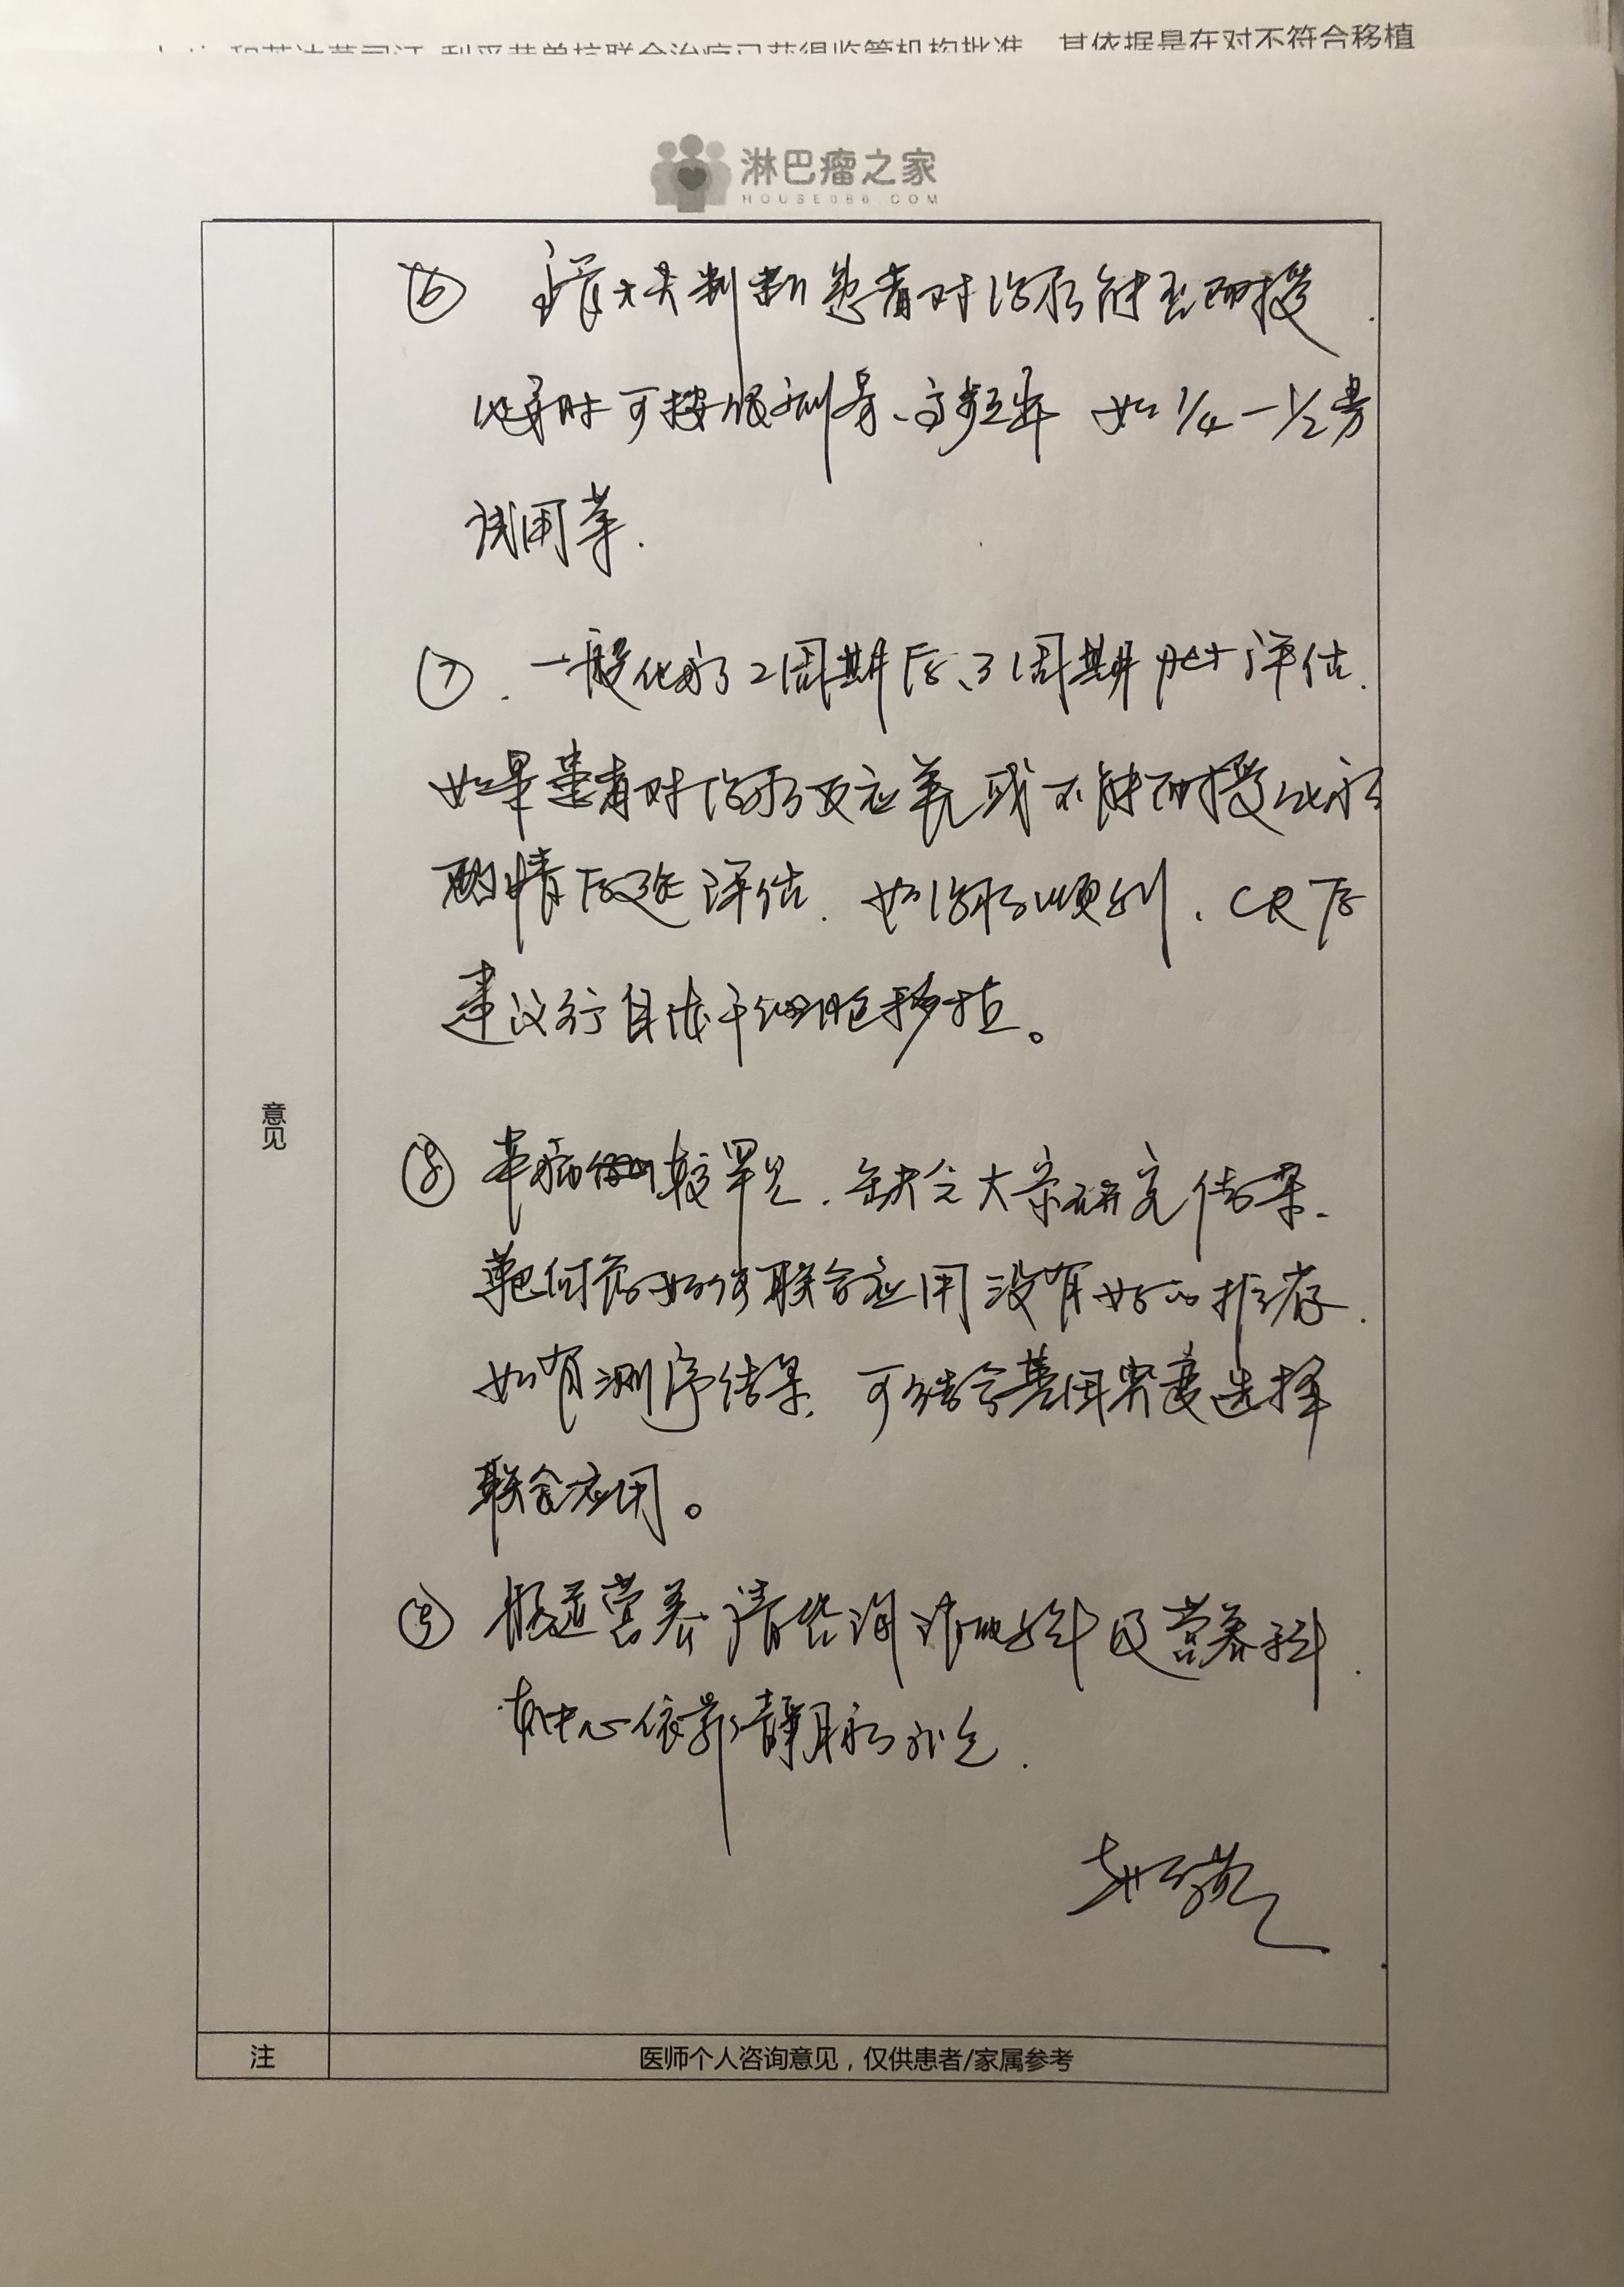 利妥昔单抗联合治疗已获得监管机构批准，其依据是在对不符合移植
淋巴瘤之家
HOUSE086.COM
⑥ 判断患者对治疗能否耐受.
可按低剂量、高频率 如1/4—1/2量
试用等.
⑦. 一般化疗2周期后、3周期 PET评估.
如果患者对治疗反应差或不能耐受化疗
酌情后延评估. 如治疗顺利、CR后
建议行自体干细胞移植。
⑧ 本病例较罕见. 缺乏大宗研究结果.
靶向药如何联合应用没有好的推荐.
如有测序结果. 可结合基因突变选择
联合应用。
⑨ 肠道营养请咨询消化科及营养科.
本中心依靠静脉补充.
意见
注
医师个人咨询意见，仅供患者/家属参考